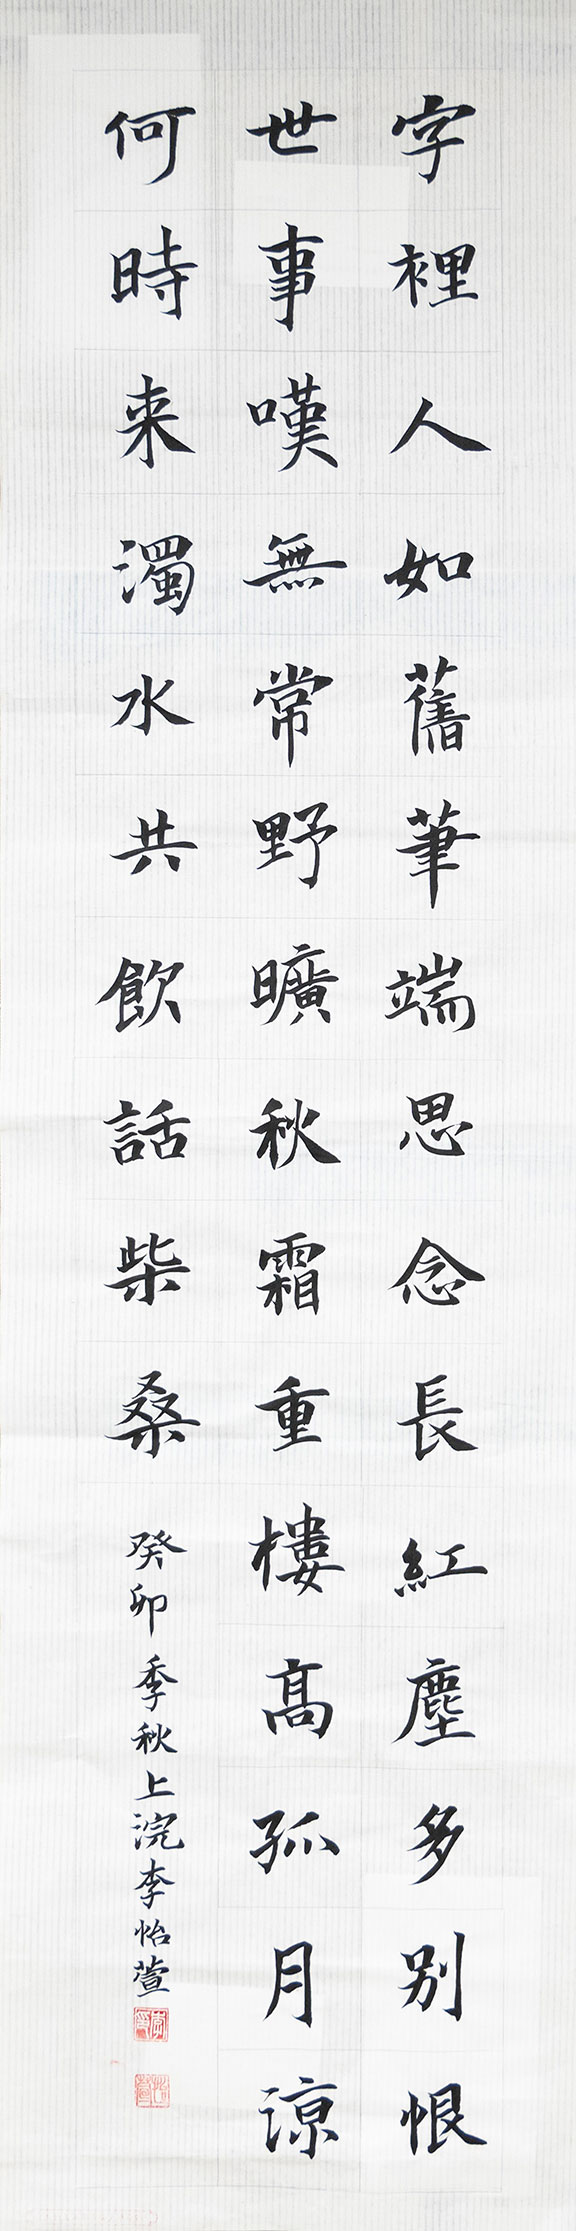 字裡人如舊筆端思念長紅塵多別恨
世事嘆無常野曠秋霜重樓高孤月涼
何時来濁水共飲話柴桑
癸卯季秋上浣李怡萱